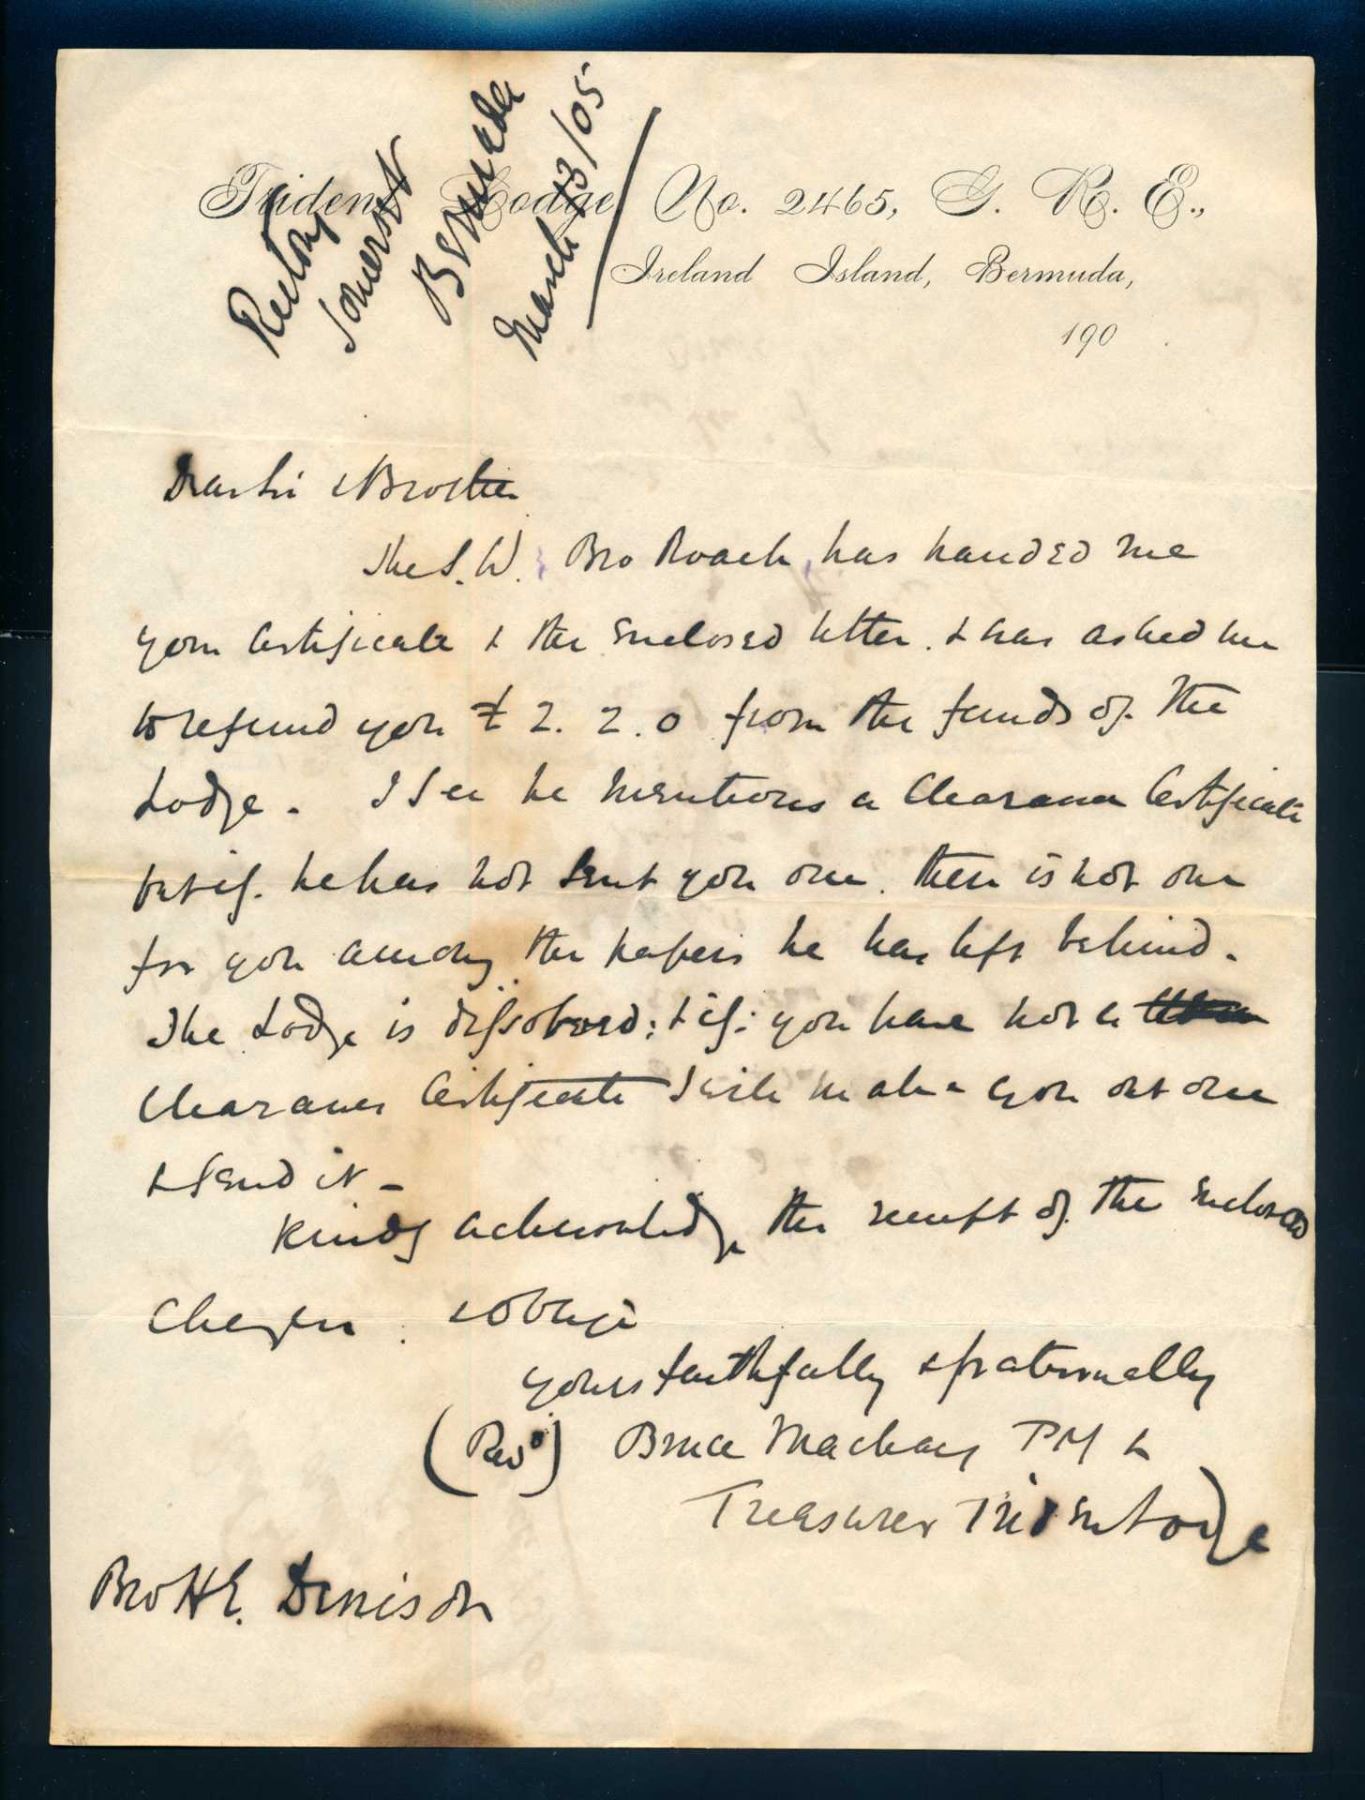 Trident Lodge No. 2465, G. R. E.,
Ireland Island, Bermuda,
190
Rectory
Somerset
Bermuda
March 13/05
Dear Sir & Brother
The S.W. Bro Roach, has handed me
your Certificate & the enclosed letter. & has asked me
to refund you £ 2. 2. 0 from the funds of the
Lodge. I see he mentions a Clearance Certificate
but if he has not sent you one. there is not one
for you among the papers he has left behind.
The Lodge is dissolved: & if you have not a
Clearance Certificate I will make you out one
& send it -
Kindly acknowledge the receipt of the enclosed
Cheque. & oblige
yours faithfully & fraternally
(Revd) Bruce Mackay PM &
Treasurer Trident Lodge
Bro H E. Denison